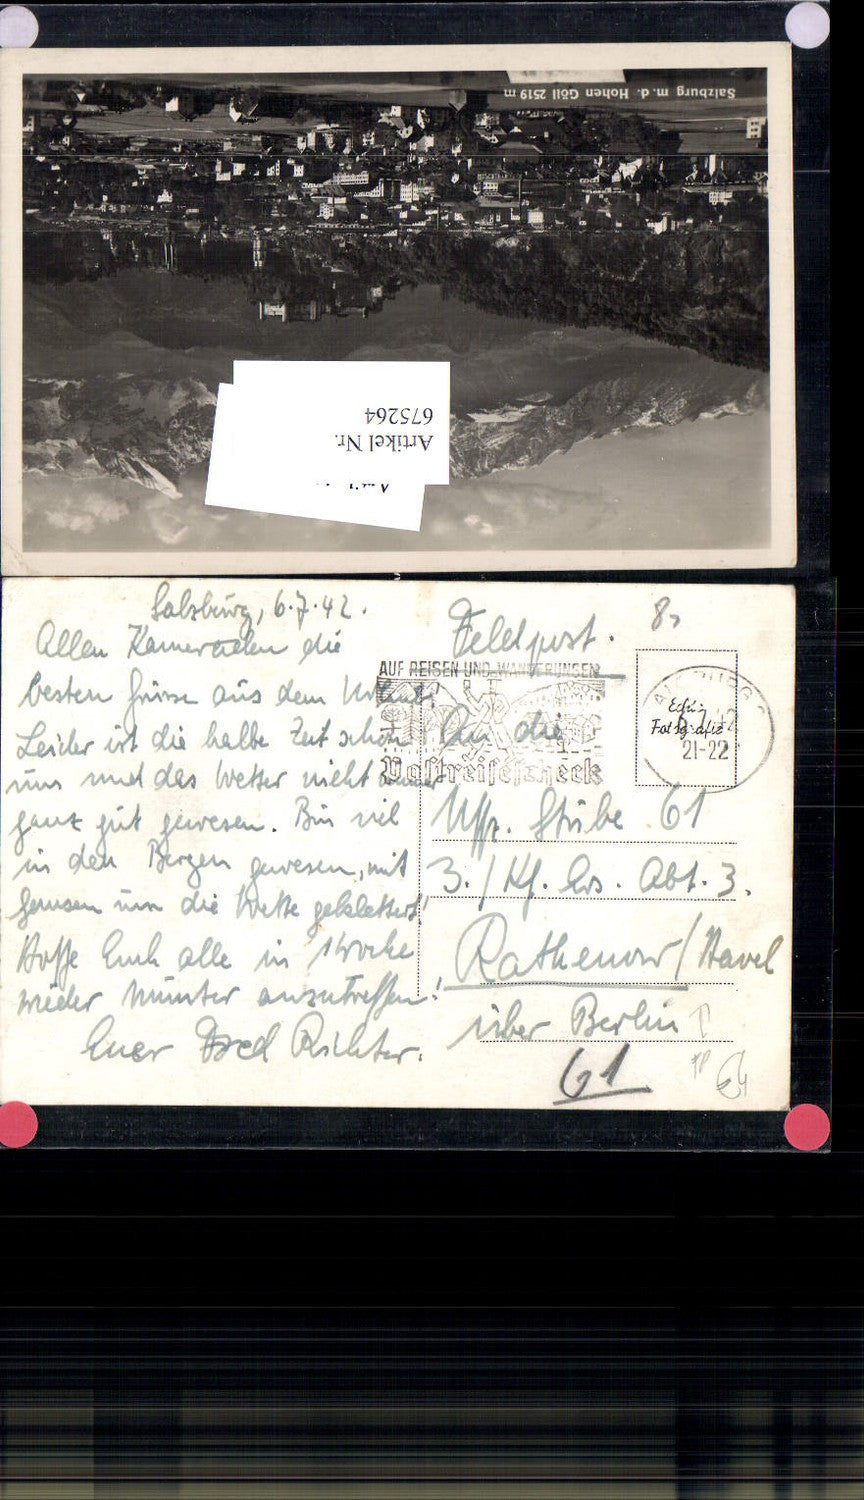 Salzburg m. d. Hohen Göll 2519 m
Artikel Nr.
675264
Salzburg, 6.7.42.
Allen Kameraden die
besten Grüsse aus dem Urlaub.
Leider ist die halbe Zeit schon
um und das Wetter nicht immer
ganz gut gewesen. Bin viel
in den Bergen gewesen, mit
Gemsen um die Wette geklettert!
Hoffe Euch alle in 1 Woche
wieder munter anzutreffen!
Euer Richter.
Feldpost.
8)
AUF REISEN UND WANDERUNGEN
Postreisescheck
Echte
Fotografie
21-22
An die
Uffz. Stube 61
3./Kf. Ers. Abt. 3.
Rathenow/Havel
über Berlin
61